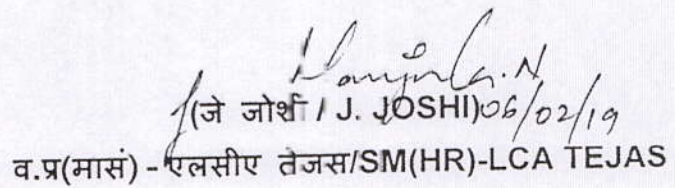 (जे जोशी / J. JOSHI) 06/02/19
व.प्र(मासं) - एलसीए तेजस/SM(HR)-LCA TEJAS